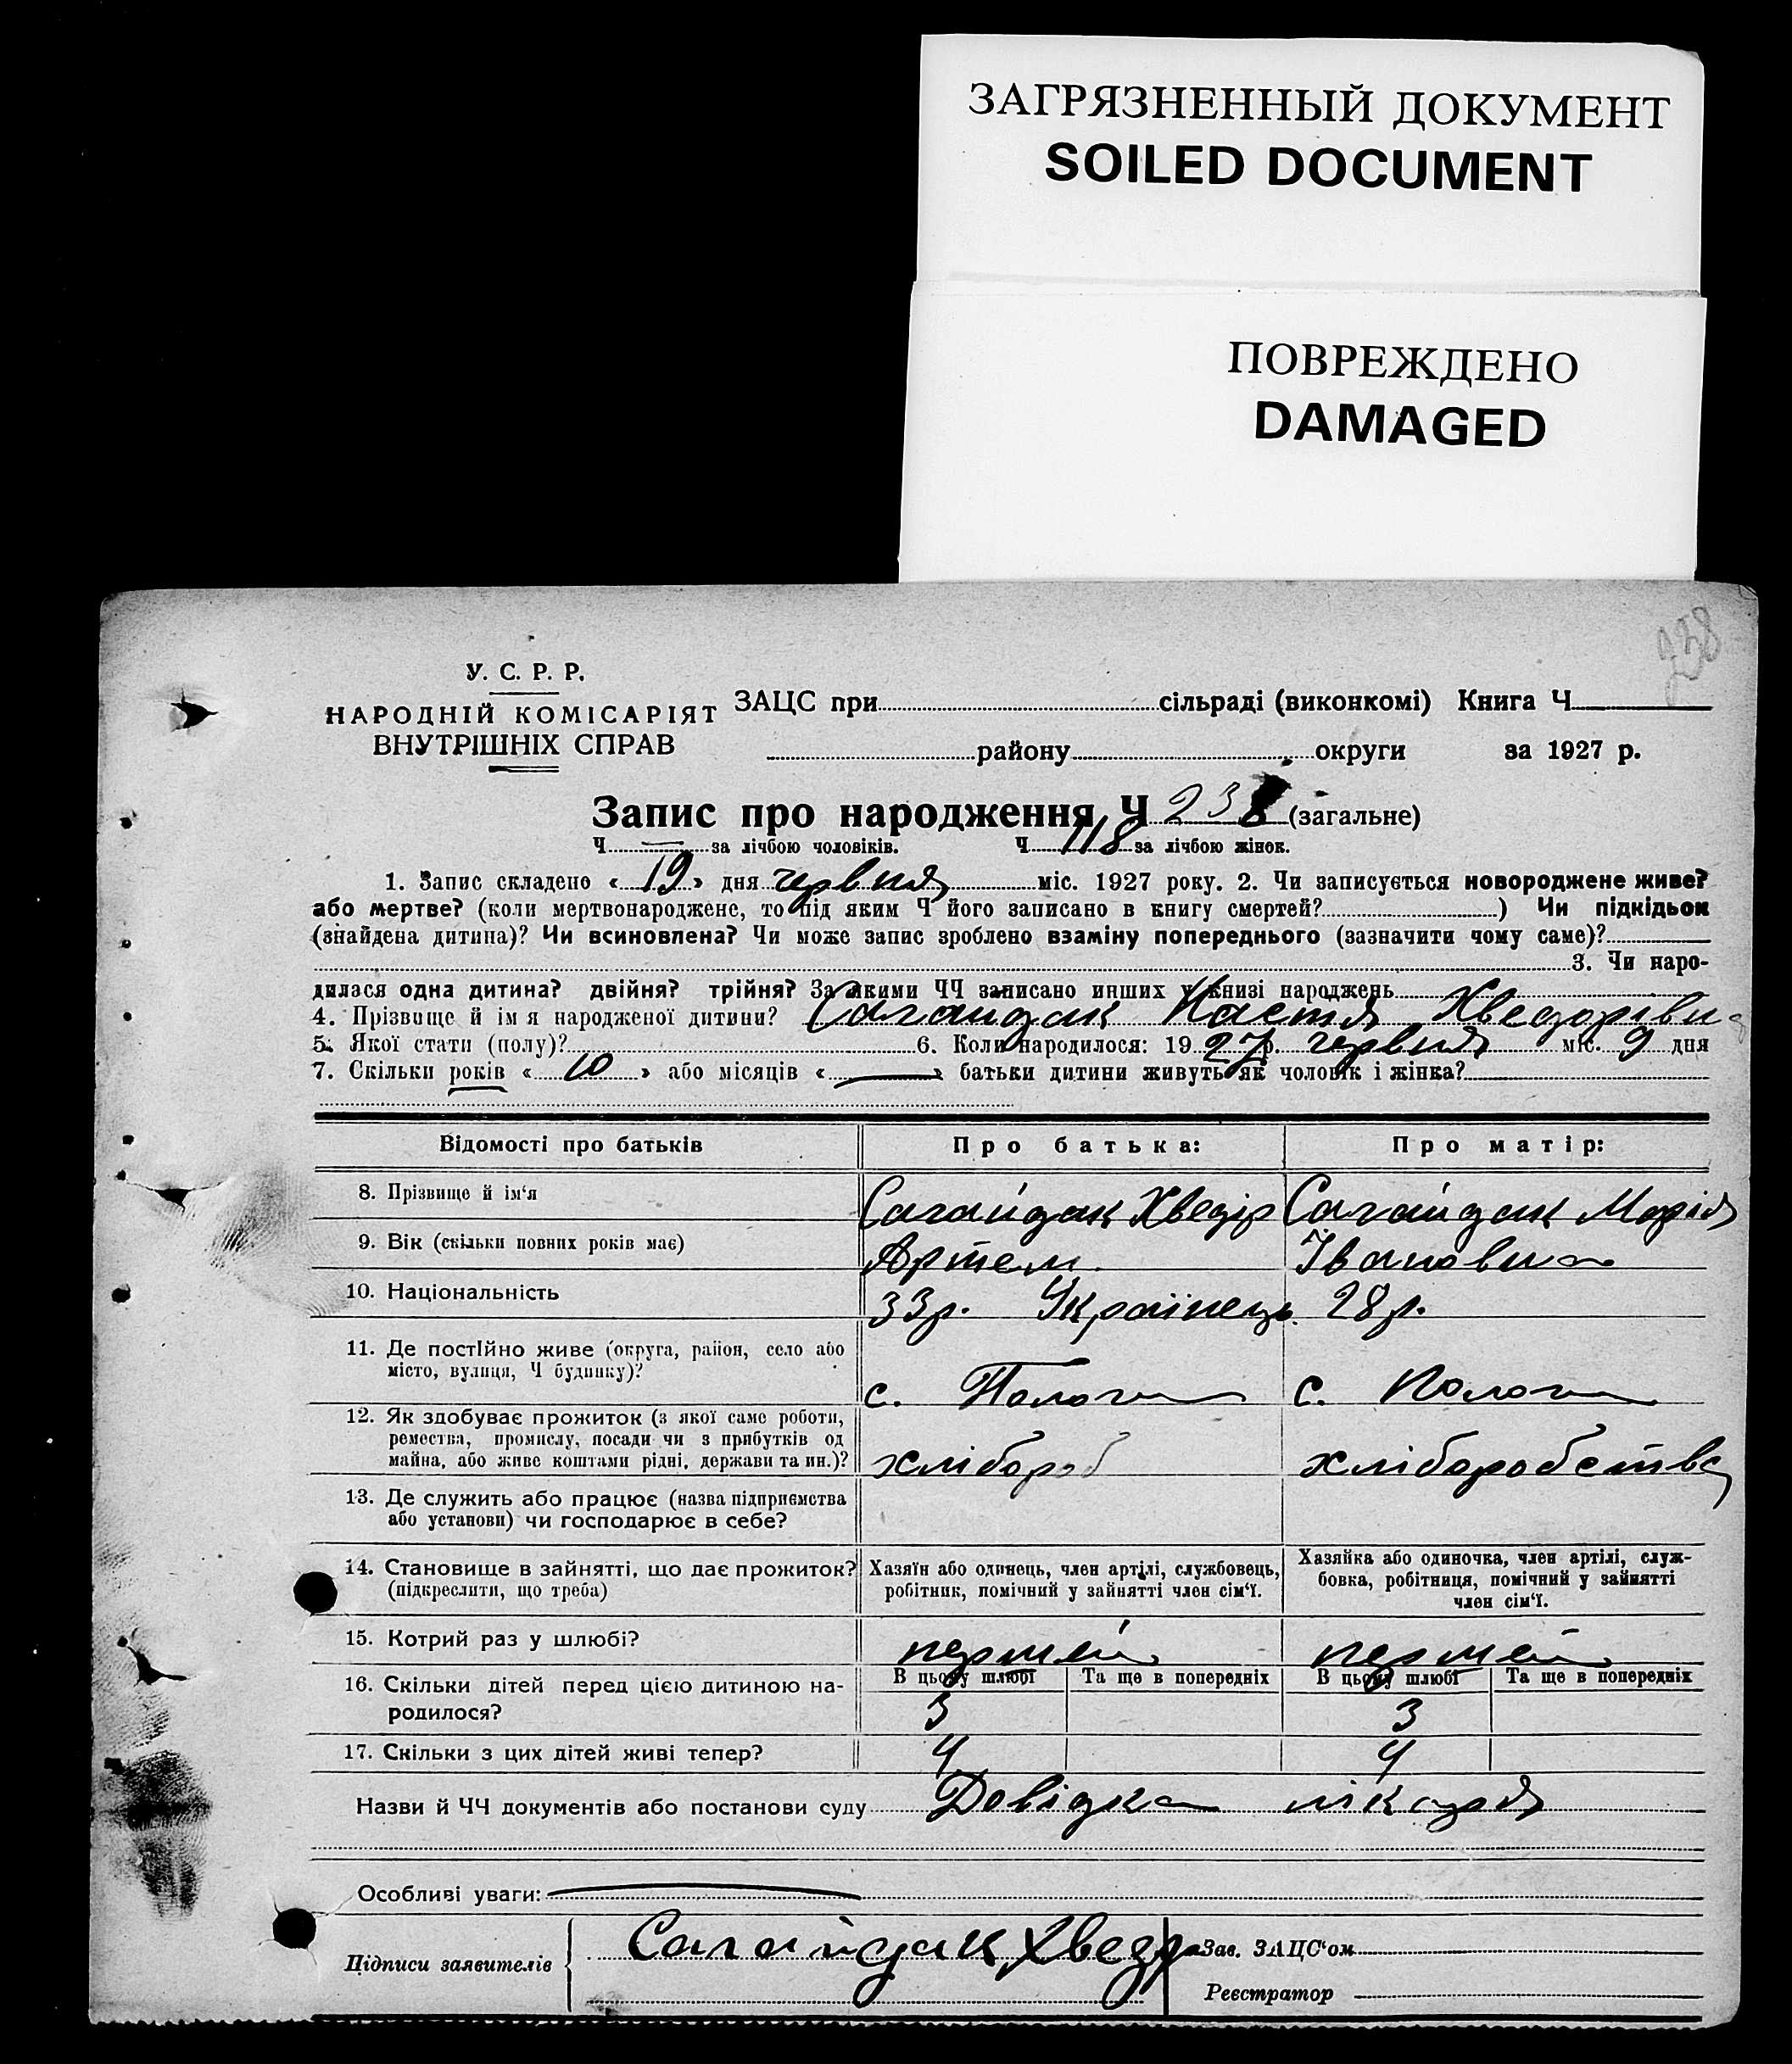 ЗАГРЯЗНЕННЫЙ ДОКУМЕНТ
SOILED DOCUMENT
ПОВРЕЖДЕНО
DAMAGED
238
У. С. Р. Р.
НАРОДНІЙ КОМІСАРІЯТ
ВНУТРІШНІХ СПРАВ
ЗАЦС при сільраді (виконкомі) Книга Ч
району округи за 1927 р.
Запис про народження Ч 238 (загальне)
Ч — за лічбою чоловіків. Ч 118 за лічбою жінок.
1. Запис складено « 19 » дня червня міс. 1927 року. 2. Чи записується новороджене живе?
або мертве? (коли мертвонароджене, то під яким Ч його записано в книгу смертей? ) Чи підкідьок
(знайдена дитина)? Чи всиновлена? Чи може запис зроблено взаміну попереднього (зазначити чому саме)?
3. Чи наро-
дилася одна дитина? двійня? трійня? За якими ЧЧ записано инших у книзі народжень
4. Прізвище й імя народженої дитини? Сагайдак Настя Хведорівна
5. Якої стати (полу)? 6. Коли народилося: 1927 р. червня міс. 9 дня
7. Скільки років « 10 » або місяців « — » батьки дитини живуть як чоловік і жінка?
Відомості про батьків Про батька: Про матір:
8. Прізвище й ім'я Сагайдак Хведір Сагайдак Марія
9. Вік (скільки повних років має) Артем. Івановна
10. Національність 33р. Українець. 28р.
11. Де постІйно живе (округа, район, село або
місто, вулиця, Ч будинку)? с. Пологи с. Пологи
12. Як здобуває прожиток (з якої саме роботи,
ремества, промислу, посади чи з прибутків од
майна, або живе коштами рідні, держави та ин.)? хлібороб хліборобство
13. Де служить або працює (назва підприємства
або установи) чи господарює в себе?
14. Становище в зайнятті, що дає прожиток?
(підкреслити, що треба)
Хазяїн або одинець, член артілі, службовець,
робітник, помічний у зайнятті член сім'ї.
Хазяйка або одиночка, член артілі, служ-
бовка, робітниця, помічний у зайнятті
член сім'ї.
15. Котрий раз у шлюбі? перший перший
16. Скільки дітей перед цією дитиною на-
родилося?
В цьому шлюбі Та ще в попередніх В цьому шлюбі Та ще в попередніх
3 3
17. Скільки з цих дітей живі тепер? 4 4
Назви й ЧЧ документів або постанови суду Довідка лікаря
Особливі уваги: —
Підписи заявителів Сагайдак Хведр Зав. ЗАЦС'ом
Реєстратор